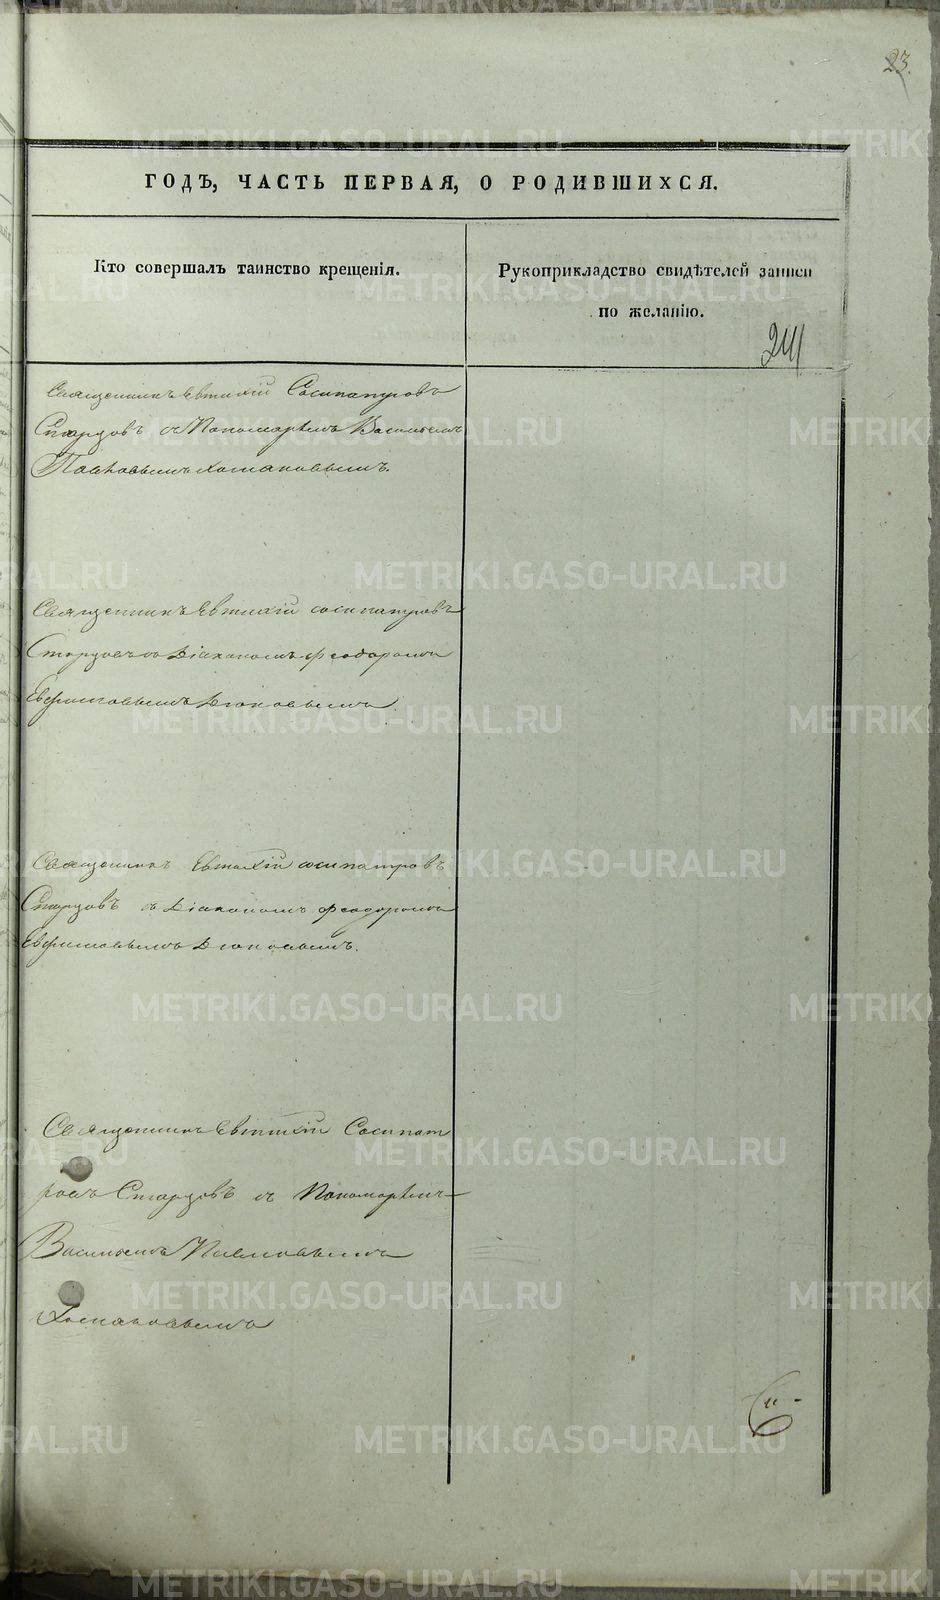 23.
ГОДЪ, ЧАСТЬ ПЕРВАЯ, О РОДИВШИХСЯ.
Кто совершалъ таинство крещенія.
Рукоприкладство свидѣтелей записи
по желанію.
Священникъ Евтихій Сосипатровъ
Старцовъ съ Пономаремъ Василіемъ
Павловымъ Хомаковымъ.
Священникъ Евтихій Сосипатровъ
Старцовъ съ Діакономъ Феодоромъ
Евфимовымъ
Священникъ Евтихій Сосипатровъ
Старцовъ съ Діакономъ Феодоромъ
Евфимовымъ
Священникъ Евтихій Сосипат
ровъ Старцовъ съ Пономаремъ
Василіемъ Павловымъ
Хомаковымъ
METRIKI.GASO-URAL.RU